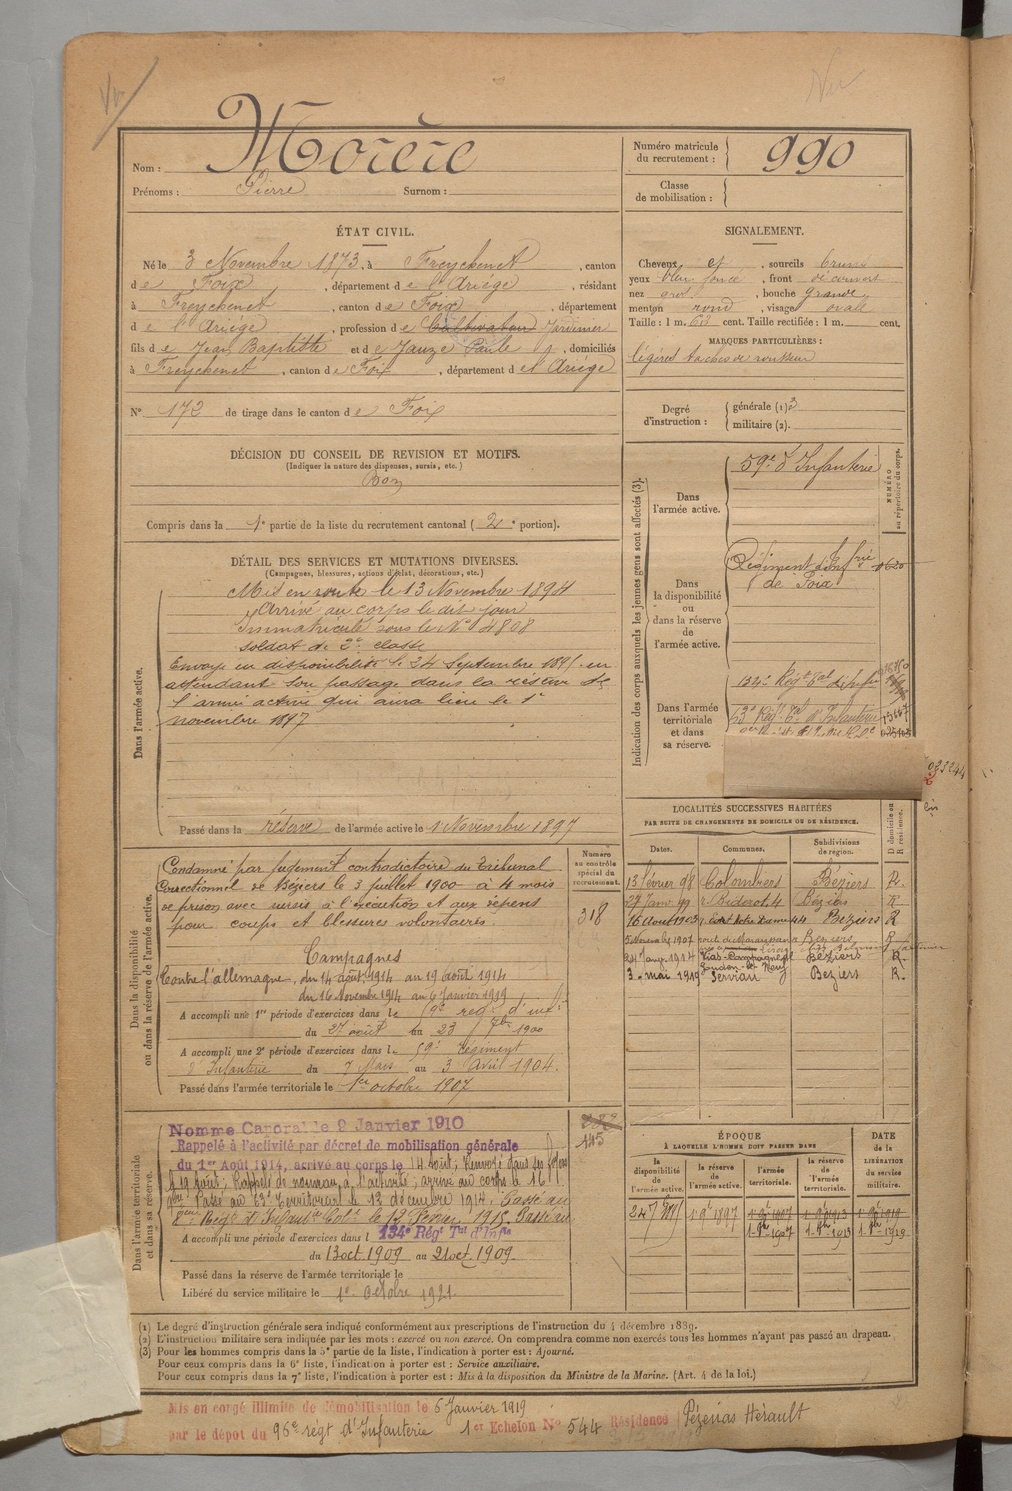 Nom : Morère
Prénoms : Pierre Surnom :
Numéro matricule du recrutement : 990
Classe de mobilisation :
ÉTAT CIVIL.
Né le 3 Novembre 1873, à Freychenet, canton
de Foix, département de l'Ariége, résidant
à Freychenet, canton de Foix, département
de l'Ariége, profession de Cultivateur Jardinier
fils de Jean Baptiste et de Jauze Paule, domiciliés
à Freychenet, canton de Foix, département de l'Ariége
N° 172 de tirage dans le canton de Foix
SIGNALEMENT.
Cheveux et, sourcils bruns
yeux bleu foncé, front découvert
nez gros, bouche grande,
menton rond, visage ovale
Taille : 1 m. 63 cent. Taille rectifiée : 1 m. cent.
MARQUES PARTICULIÈRES :
légères taches de rousseur
Degré d'instruction : générale (1) 3
militaire (2).
DÉCISION DU CONSEIL DE REVISION ET MOTIFS.
(Indiquer la nature des dispenses, sursis, etc.)
Bon
Compris dans la 1e partie de la liste du recrutement cantonal (2e portion).
DÉTAIL DES SERVICES ET MUTATIONS DIVERSES.
(Campagnes, blessures, actions d'éclat, décorations, etc.)
Dans l'armée active.
Mis en route le 13 Novembre 1894
Arrivé au corps le dit jour
Immatriculé sous le N° 4808
soldat de 2e classe
Envoyé en disponibilité le 24 Septembre 189 en
attendant son passage dans la réserve de
l'armée active qui aura lieu le 1er
novembre 1897
Passé dans la réserve de l'armée active le 1 Novembre 1897
Indication des corps auxquels les jeunes gens sont affectés (3).
NUMÉRO au répertoire du corps.
Dans l'armée active.
59e d'Infanterie
Dans la disponibilité ou dans la réserve de l'armée active.
Régiment d'Inf rie
de Foix
Dans l'armée territoriale et dans sa réserve.
134e Régt tal d'infie
LOCALITÉS SUCCESSIVES HABITÉES
PAR SUITE DE CHANGEMENTS DE DOMICILE OU DE RÉSIDENCE.
Dates. Communes. Subdivisions de région. D domicile ou R résidence.
13 février 98 Colombiers Béziers R.
27 Janv 99 r. Riderot 4 Béziers R
16 Aout 1903 Béziers R
5 Novembre 1907 Beziers R
Vias-Campagne Béziers R.
3 mai 1919 Servian Beziers R.
Dans la disponibilité ou dans la réserve de l'armée active.
Numéro au contrôle spécial du recrutement.
318
Condamné par jugement contradictoire du Tribunal
Correctionnel de Béziers le 3 juillet 1900 à 4 mois
de prison avec sursis à l'exécution et aux dépens
pour coups et blessures volontaires.
Campagnes
Contre l'allemagne, du 14 août 1914 au 19 août 1914
du 16 Novembre 1914 au 6 Janvier 1919
A accompli une 1re période d'exercices dans le 59e reg. d'infie
du 27 août au 23 7bre 1900
A accompli une 2e période d'exercices dans le 59e régiment
d'Infanterie du 7 Mars au 3 Avril 1904.
Passé dans l'armée territoriale le 1er octobre 1907
Dans l'armée territoriale et dans sa réserve.
145
Nommé Caporal le 2 Janvier 1910
Rappelé à l'activité par décret de mobilisation générale
du 1er Août 1914, arrivé au corps le 14 août; Renvoyé dans ses foyers
le 19 aout; Rappelé de nouveau à l'activité; arrivé au corps le 16
9bre. Passé au 63e Territorial le 13 décembre 1914. Passé au
Régt d'Infanterie Cole le 1915. Passé au
134e Régt Tal d'Infie
A accompli une période d'exercices dans l
du 13 oct. 1909 au 21 oct. 1909.
Passé dans la réserve de l'armée territoriale le
Libéré du service militaire le 1er Octobre 1921
ÉPOQUE À LAQUELLE L'HOMME DOIT PASSER DANS
DATE de la LIBÉRATION du service militaire.
la disponibilité de l'armée active. la réserve de l'armée active. l'armée territoriale. la réserve de l'armée territoriale.
(1) Le degré d'instruction générale sera indiqué conformément aux prescriptions de l'instruction du 4 décembre 1889.
(2) L'instruction militaire sera indiquée par les mots : exercé ou non exercé. On comprendra comme non exercés tous les hommes n'ayant pas passé au drapeau.
(3) Pour les hommes compris dans la 5e partie de la liste, l'indication à porter est : Ajourné.
Pour ceux compris dans la 6e liste, l'indication à porter est : Service auxiliaire.
Pour ceux compris dans la 7e liste, l'indication à porter est : Mis à la disposition du Ministre de la Marine. (Art. 4 de la loi.)
Mis en congé illimité de démobilisation le 6 Janvier 1919
par le dépot du 96e régt d'Infanterie 1er Echelon N° 544 Résidence Pézenas Hérault